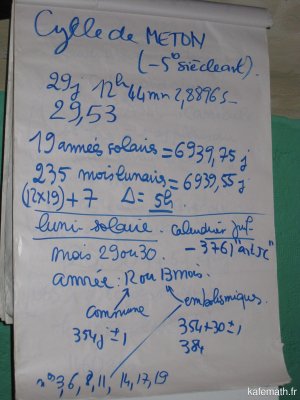 Cycle de METON
(-5° siècle av).
29j 12h 44mn 2,8896 s
29,53
19 années solaires = 6939,75 j
235 mois lunaires = 6939,55 j
(12x19) + 7 Δ = 5h
luni-solaire. calendrier juif
- 3761 "av J.C"
mois 29 ou 30.
année : 12 ou 13 mois.
commune embolismiques.
354j ± 1 354+30 ± 1
384
n°s 3, 6, 8, 11, 14, 17, 19
kafemath.fr